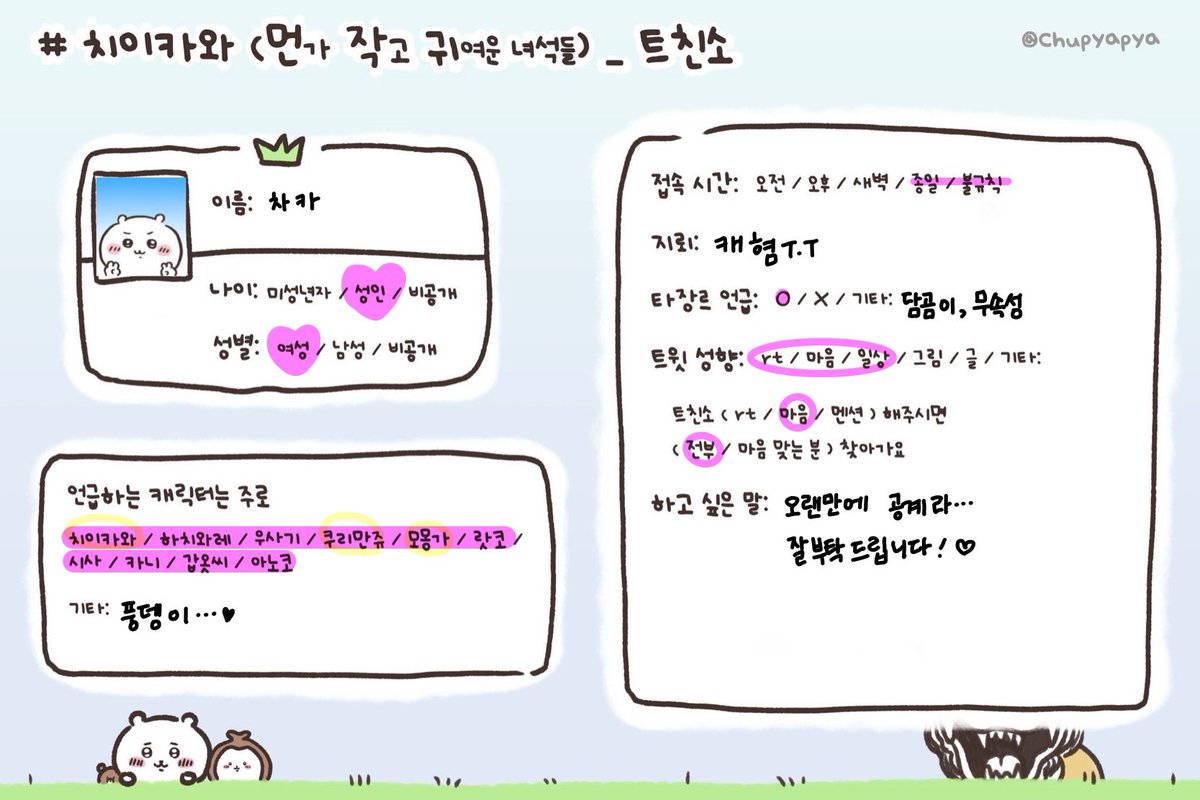 # 치이카와 (먼가 작고 귀여운 녀석들) _ 트친소
@Chupyapya
이름: 차카
나이: 미성년자 / 성인 / 비공개
성별: 여성 / 남성 / 비공개
언급하는 캐릭터는 주로
치이카와 / 하치와레 / 우사기 / 쿠리만쥬 / 모몽가 / 랏코 /
시사 / 카니 / 갑옷씨 / 아노코
기타: 풍뎅이…♥
접속 시간: 오전 / 오후 / 새벽 / 종일 / 불규칙
지뢰: 캐혐T.T
타장르 언급: O / X / 기타: 담곰이, 무속성
트윗 성향: rt / 마음 / 일상 / 그림 / 글 / 기타:
트친소 ( rt / 마음 / 멘션 ) 해주시면
( 전부 / 마음 맞는 분 ) 찾아가요
하고 싶은 말: 오랜만에 공계라…
잘부탁드립니다! ♡